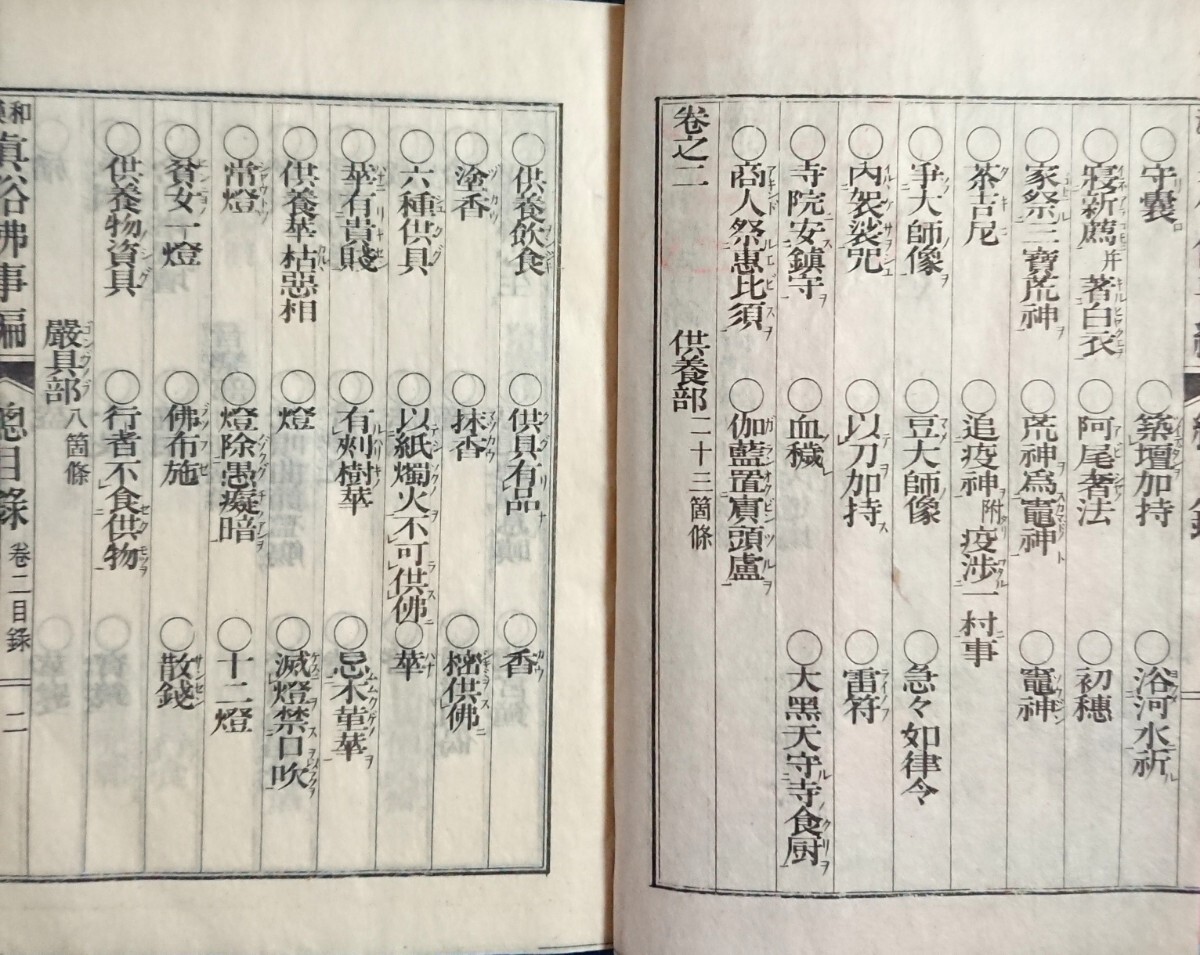 ○守嚢 ○築壇加持 ○浴河水祈
○寝新薦并著白衣 ○阿尾奢法 ○初穂
○家祭三寶荒神 ○荒神爲竈神 ○竈神
○茶吉尼 ○追疫神附疫渉一村事
○爭大師像 ○豆大師像 ○急々如律令
○内袈裟咒 ○以刀加持 ○雷符
○寺院安鎮守 ○血穢 ○大黑天守寺食厨
○商人祭惠比須 ○伽藍置賓頭盧
卷之二 供養部二十三箇條
○供養飲食 ○供具有品 ○香
○塗香 ○抹香 ○樒供佛
○六種供具 ○以紙燭火不可供佛 ○華
○華有貴賤 ○有刺樹華 ○忌木菫華
○供養華枯惡相 ○燈 ○滅燈禁口吹
○常燈 ○燈除愚癡暗 ○十二燈
○貧女一燈 ○佛布施 ○散錢
○供養物資具 ○行者不食供物
嚴具部八箇條
和 眞俗佛事編 總目錄 卷二目錄 二